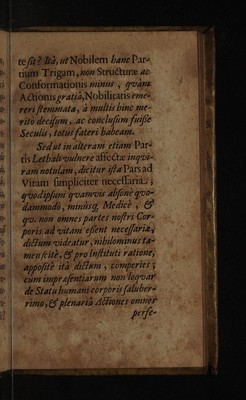 te sit? Ità, ut Nobilem hanc Par-
tium Trigam, non Structuræ ac
Conformationis minus, quàm
Actionis gratiâ, Nobilitatis eme-
reri stemmata, à multis hinc me-
ritò decisum, ac conclusum fuisse
Seculis, totus fateri habeam.
Sed ut in alteram etiam Par-
tis Lethali vulnere affectæ inqui-
ram notulam, dicitur ista Pars ad
Vitam simpliciter necessaria;
quod ipsum quamvis absone quo-
dammodo, minusq; Medicè, &
qv. non omnes partes nostri Cor-
poris ad vitam essent necessariæ,
dictum videatur, nihilominus ta-
men scitè, & pro Instituti ratione,
appositè ità dictum, comperies;
cum impræsentiarum non loqvar
de Statu humani corporis saluber-
rimo, & plenariâ Actiones omnes
perfe-